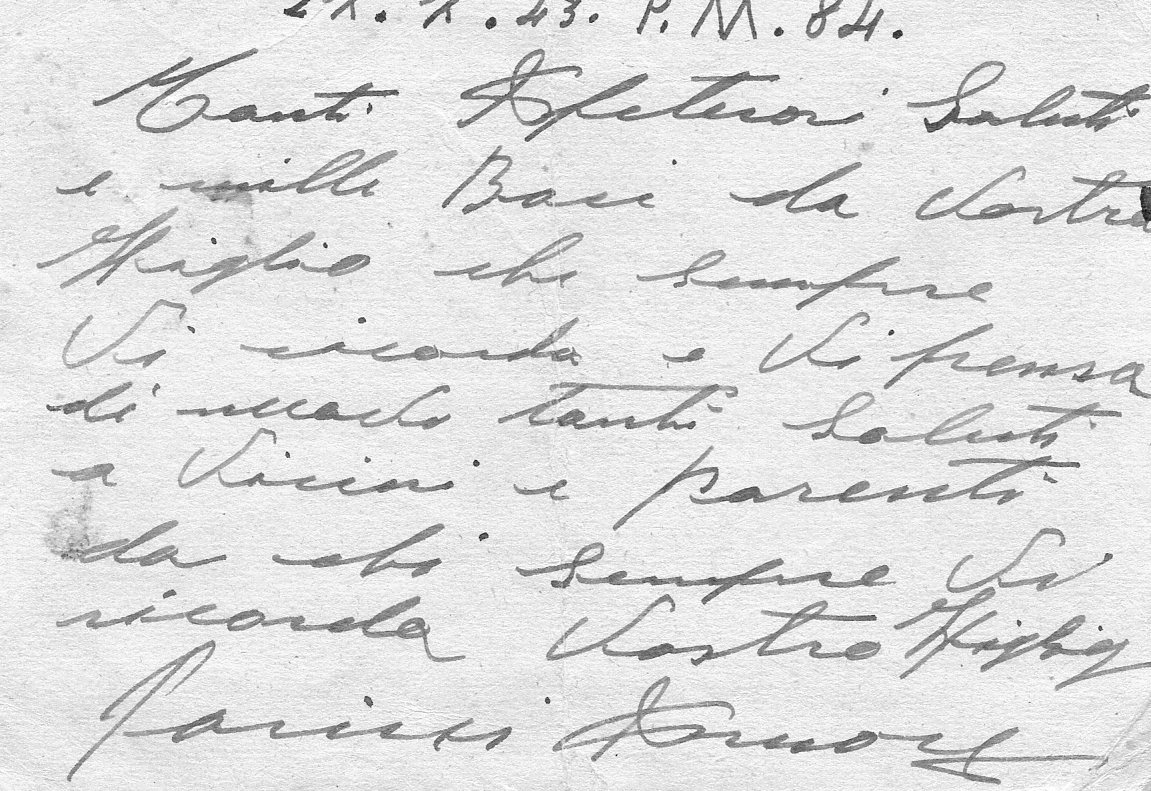 43. P.M. 84.
Tanti Saluti
e mille Baci da Vostro
Figlio che sempre
Vi ricorda e Vi pensa
di nuovo tanti Saluti
a Vicini e parenti
da chi sempre Vi
ricorda Vostro Figlio